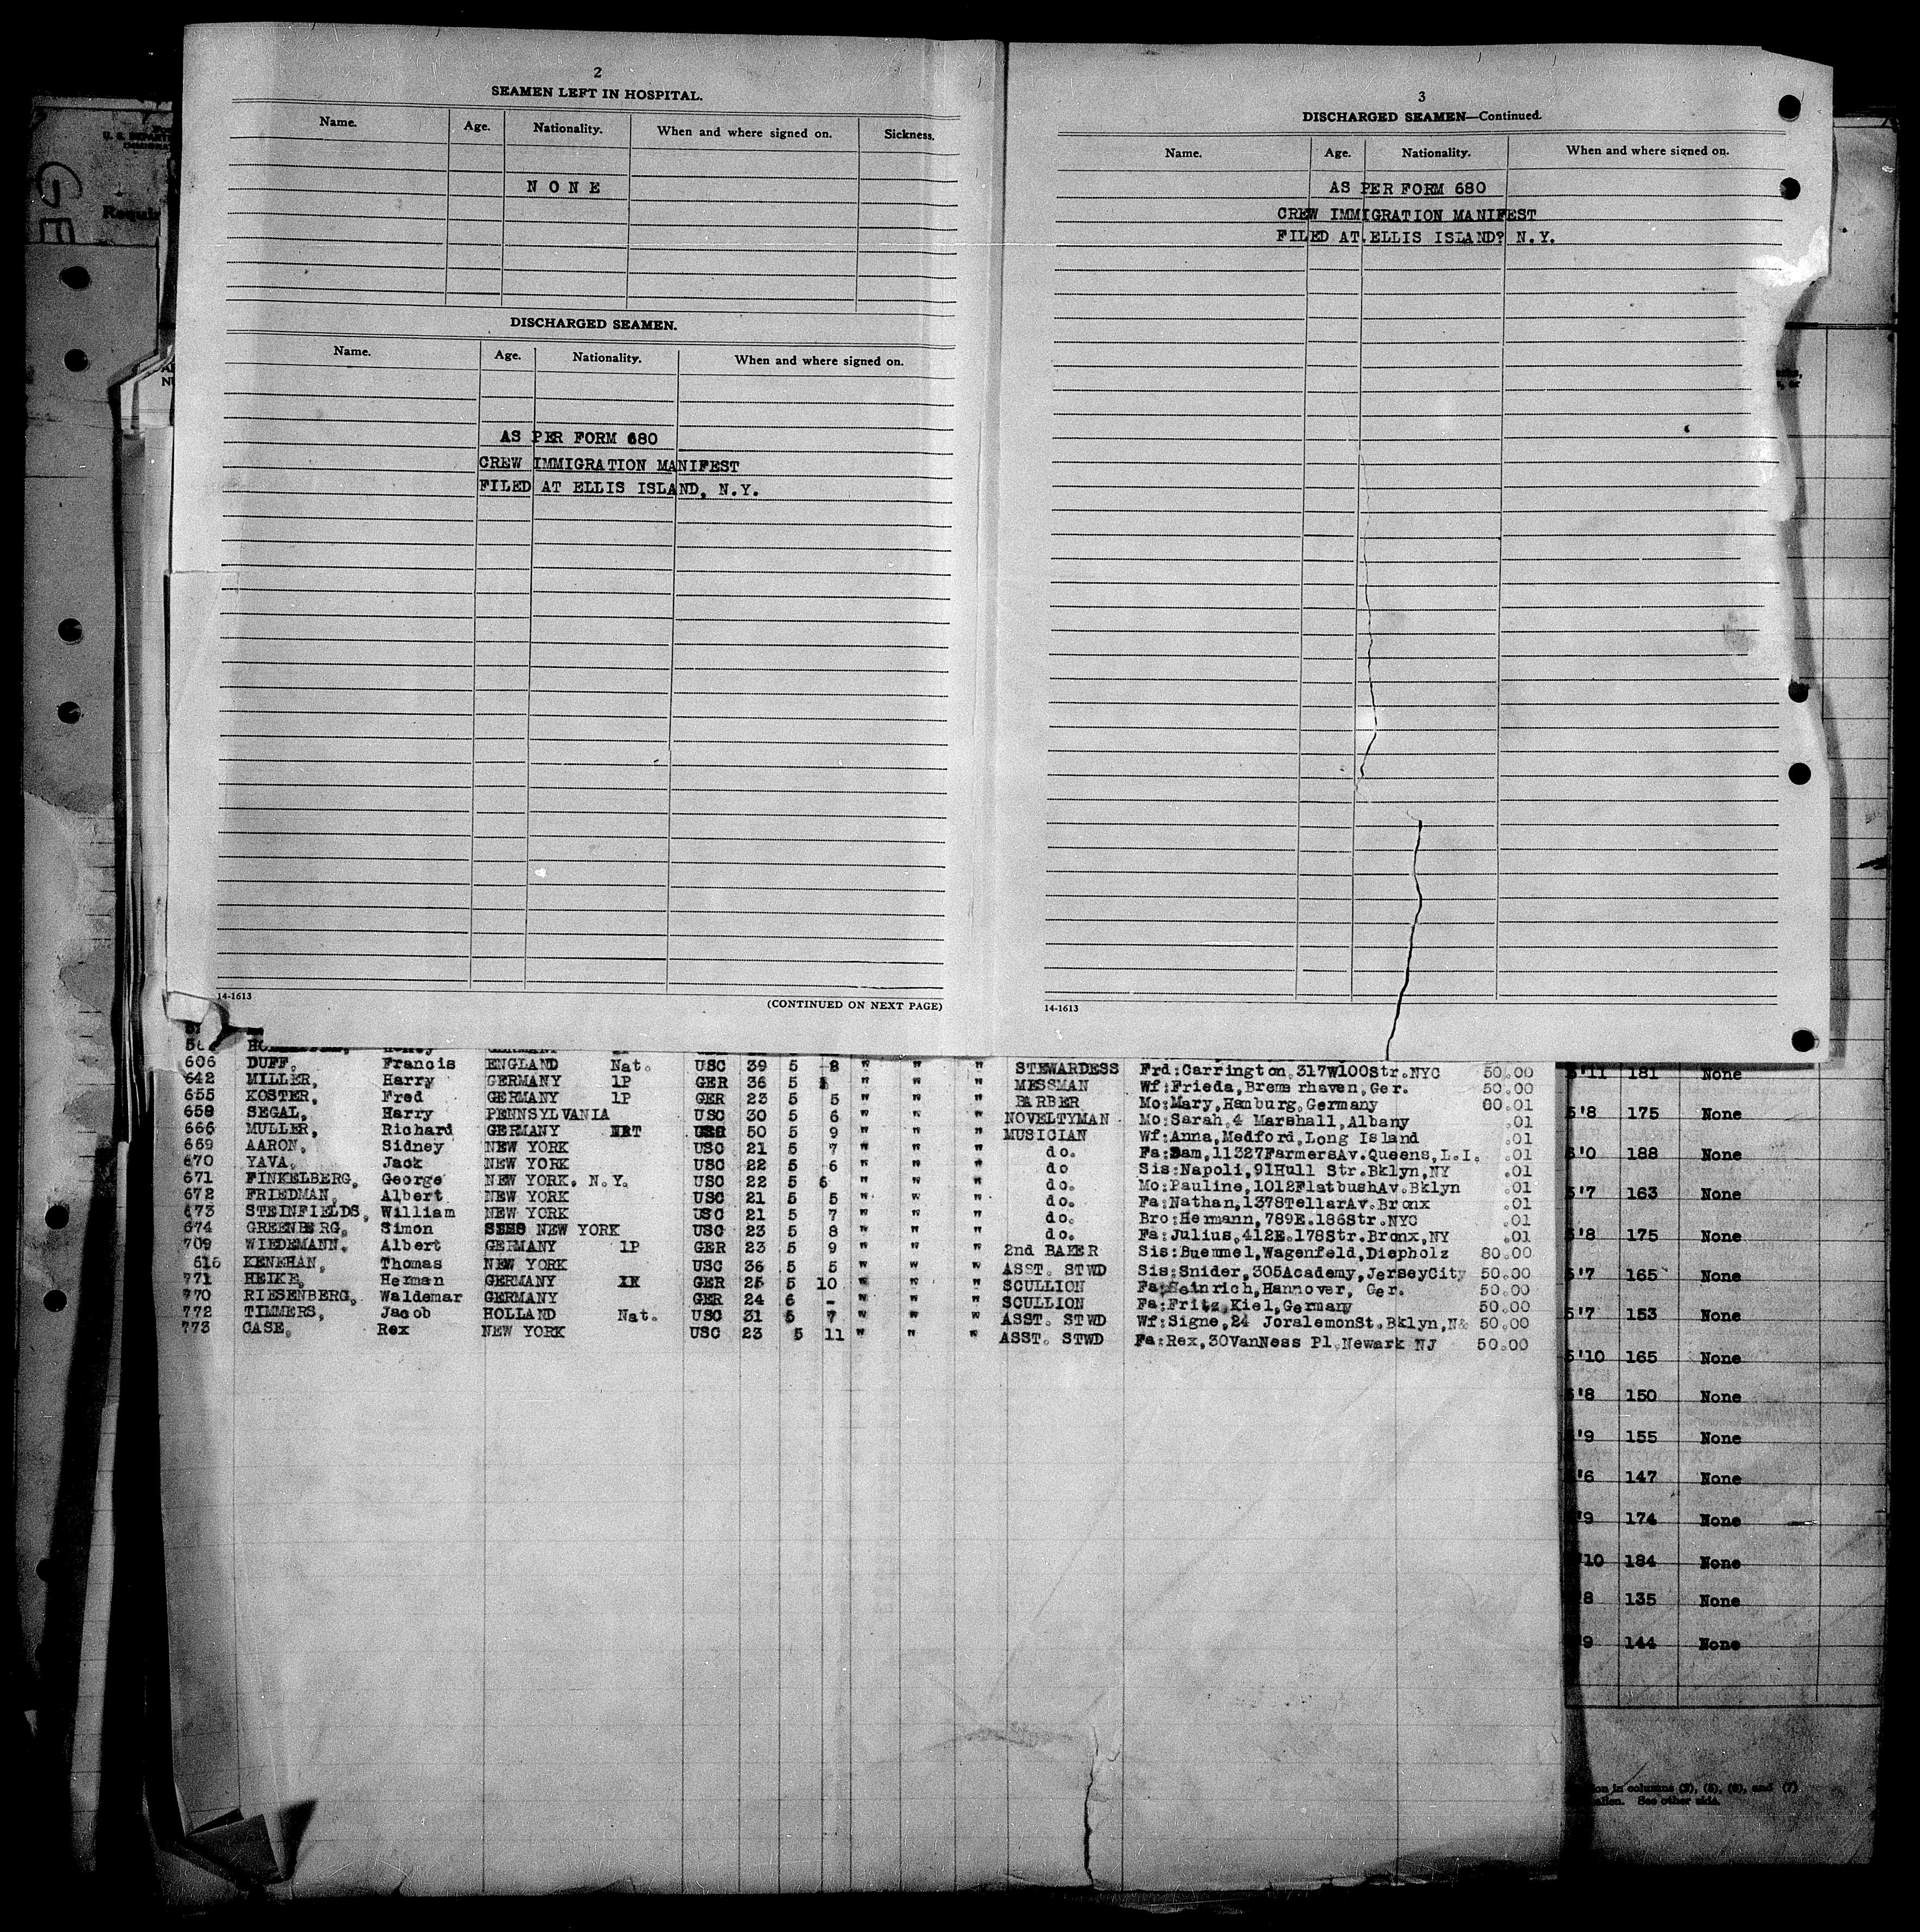 2
SEAMEN LEFT IN HOSPITAL.
Name. Age. Nationality. When and where signed on. Sickness.
N O N E
DISCHARGED SEAMEN.
Name. Age. Nationality. When and where signed on.
AS PER FORM 680
CREW IMMIGRATION MANIFEST
FILED AT ELLIS ISLAND, N.Y.
14-1613 (CONTINUED ON NEXT PAGE)
3
DISCHARGED SEAMEN—Continued.
Name. Age. Nationality. When and where signed on.
AS PER FORM 680
CREW IMMIGRATION MANIFEST
FILED AT ELLIS ISLAND? N.Y.
14-1613
606 DUFF, Francis ENGLAND Nat. USC 39 5 8 " " " STEWARDESS Frd:Carrington,317W100Str.NYC 50.00
642 MILLER, Harry GERMANY 1P GER 36 5 " " " MESSMAN Wf:Frieda,Bremerhaven,Ger. 50.00
655 KOSTER, Fred GERMANY 1P GER 23 5 5 " " " BARBER Mo:Mary,Hamburg,Germany 80.01
658 SEGAL, Harry PENNSYLVANIA USC 30 5 6 " " " NOVELTYMAN Mo:Sarah,4 Marshall,Albany .01
666 MULLER, Richard GERMANY USC 50 5 9 " " " MUSICIAN Wf:Anna,Medford,Long Island .01
669 AARON, Sidney NEW YORK USC 21 5 7 " " " do. Fa:Sam,11327FarmersAv.Queens,L.I. .01
670 YAVA, Jack NEW YORK USC 22 5 6 " " " do Sis:Napoli,91Hull Str.Bklyn,NY .01
671 FINKELBERG, George NEW YORK, N.Y. USC 22 5 6 " " " do. Mo:Pauline,1012FlatbushAv.Bklyn .01
672 FRIEDMAN, Albert NEW YORK USC 21 5 5 " " " do. Fa:Nathan,1378TellarAv.Bronx .01
673 STEINFIELDS, William NEW YORK USC 21 5 7 " " " do. Bro:Hermann,789E.186Str.NYC .01
674 GREENBERG, Simon NEW YORK USC 23 5 8 " " " do. Fa:Julius,412E.178Str.Bronx,NY .01
709 WIEDEMANN, Albert GERMANY 1P GER 23 5 9 " " " 2nd BAKER Sis:Buemmel,Wagenfeld,Diepholz 80.00
616 KENEHAN, Thomas NEW YORK USC 36 5 5 " " " ASST. STWD Sis:Snider,305Academy,JerseyCity 50.00
771 HEIKE, Herman GERMANY GER 25 5 10 " " " SCULLION Fa:Heinrich,Hannover, Ger. 50.00
770 RIESENBERG, Waldemar GERMANY GER 24 6 - " " " SCULLION Fa:Fritz,Kiel,Germany 50.00
772 TIMMERS, Jacob HOLLAND Nat. USC 31 5 7 " " " ASST. STWD Wf:Signe,24 JoralemonSt.Bklyn, 50.00
773 CASE, Rex NEW YORK USC 23 5 11 " " " ASST. STWD Fa:Rex,30VanNess Pl.Newark NJ 50.00
5'11 181 None
5'8 175 None
6'0 188 None
5'7 163 None
5'8 175 None
5'7 165 None
5'7 153 None
5'10 165 None
5'8 150 None
'9 155 None
'6 147 None
'9 174 None
'10 184 None
8 135 None
9 144 None
in columns (3), (5), (6), and (7)
alien. See other side.